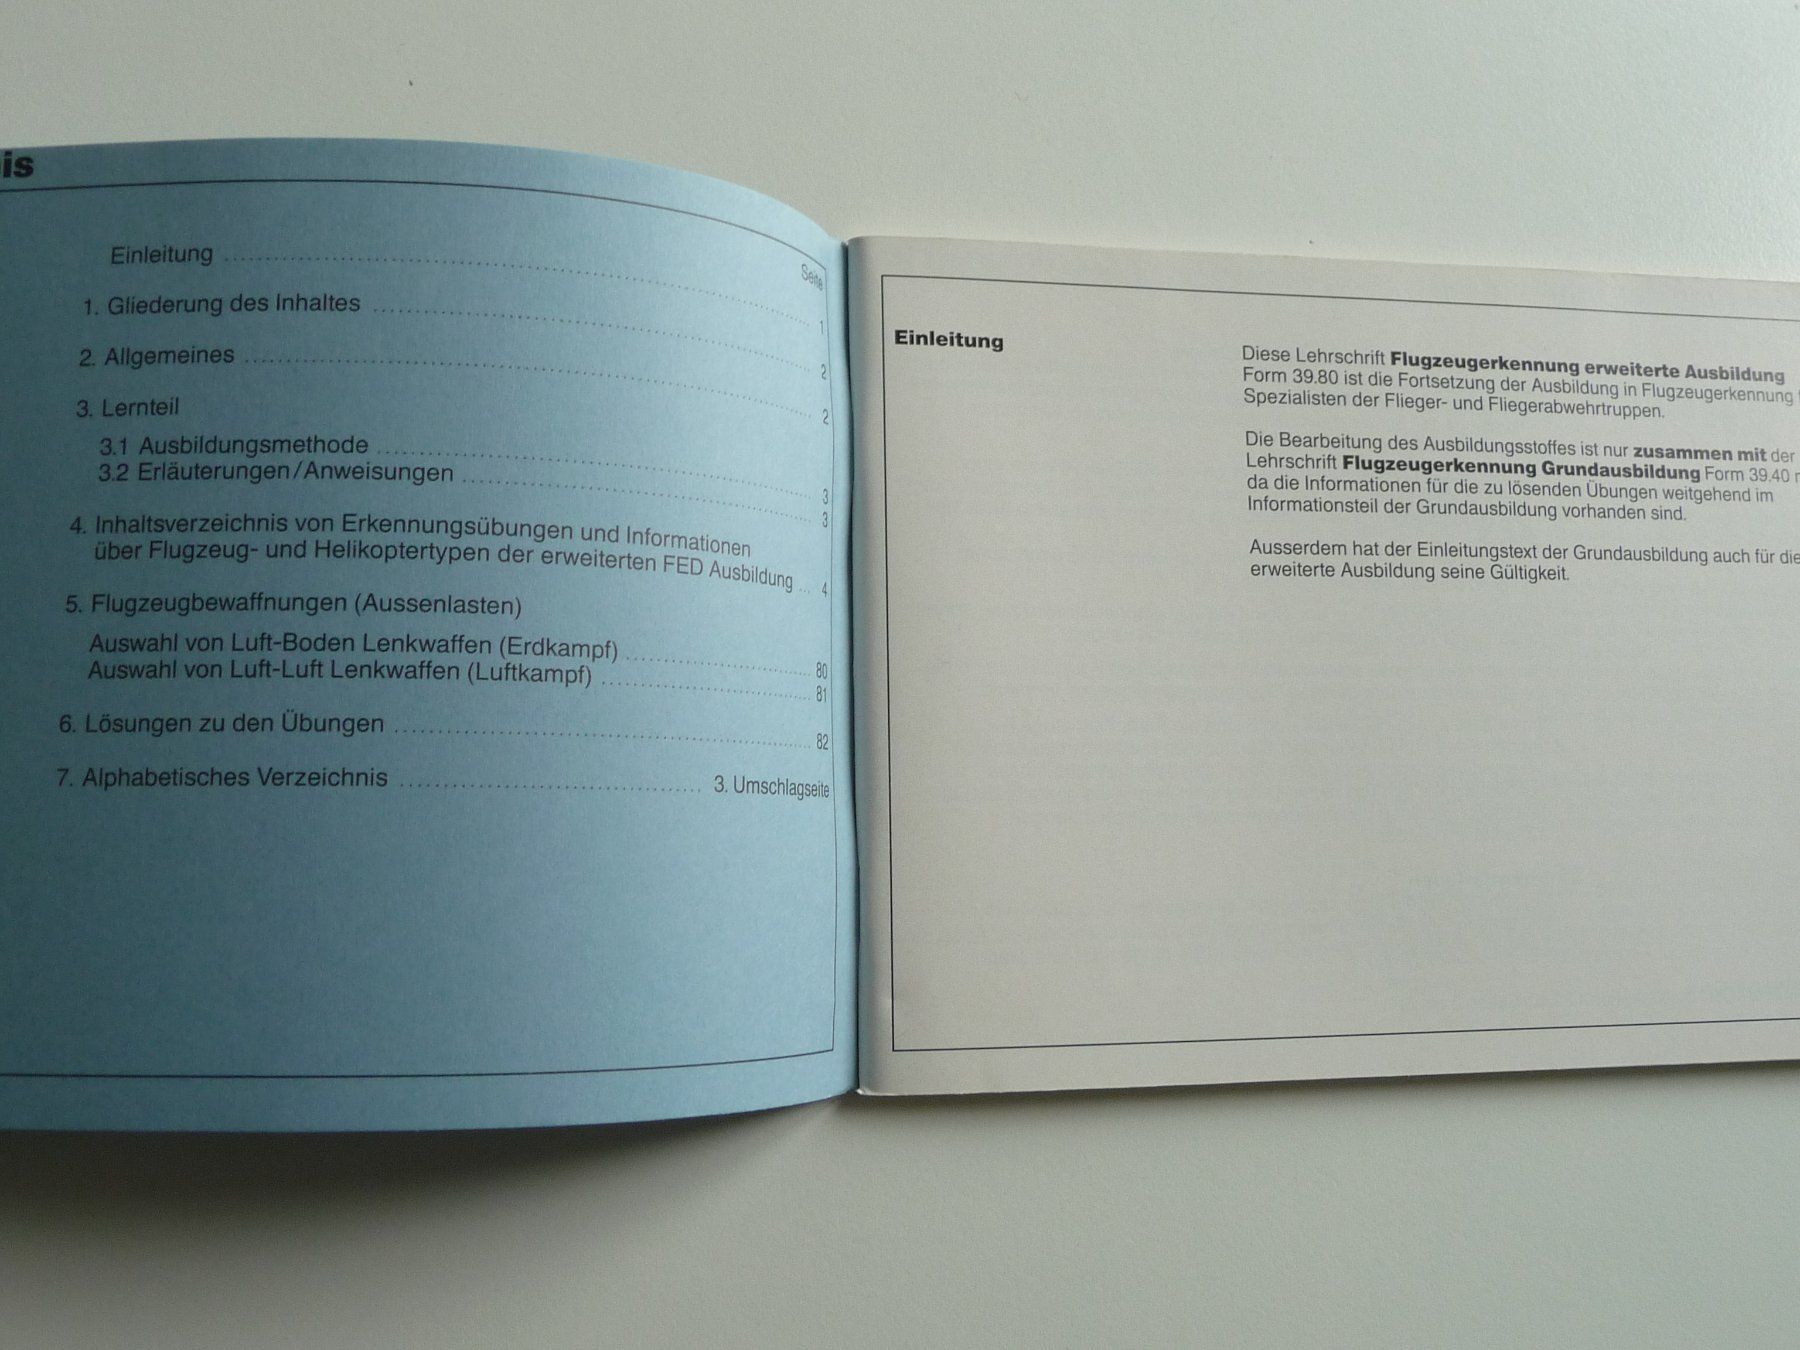 is
Seite
Einleitung 1
1. Gliederung des Inhaltes 2
2. Allgemeines 2
3. Lernteil
3.1 Ausbildungsmethode 3
3.2 Erläuterungen/Anweisungen 3
4. Inhaltsverzeichnis von Erkennungsübungen und Informationen
über Flugzeug- und Helikoptertypen der erweiterten FED Ausbildung ... 4
5. Flugzeugbewaffnungen (Aussenlasten)
Auswahl von Luft-Boden Lenkwaffen (Erdkampf) 80
Auswahl von Luft-Luft Lenkwaffen (Luftkampf) 81
6. Lösungen zu den Übungen 82
7. Alphabetisches Verzeichnis 3. Umschlagseite
Einleitung
Diese Lehrschrift Flugzeugerkennung erweiterte Ausbildung
Form 39.80 ist die Fortsetzung der Ausbildung in Flugzeugerkennung
Spezialisten der Flieger- und Fliegerabwehrtruppen.
Die Bearbeitung des Ausbildungsstoffes ist nur zusammen mit der
Lehrschrift Flugzeugerkennung Grundausbildung Form 39.40
da die Informationen für die zu lösenden Übungen weitgehend im
Informationsteil der Grundausbildung vorhanden sind.
Ausserdem hat der Einleitungstext der Grundausbildung auch für die
erweiterte Ausbildung seine Gültigkeit.